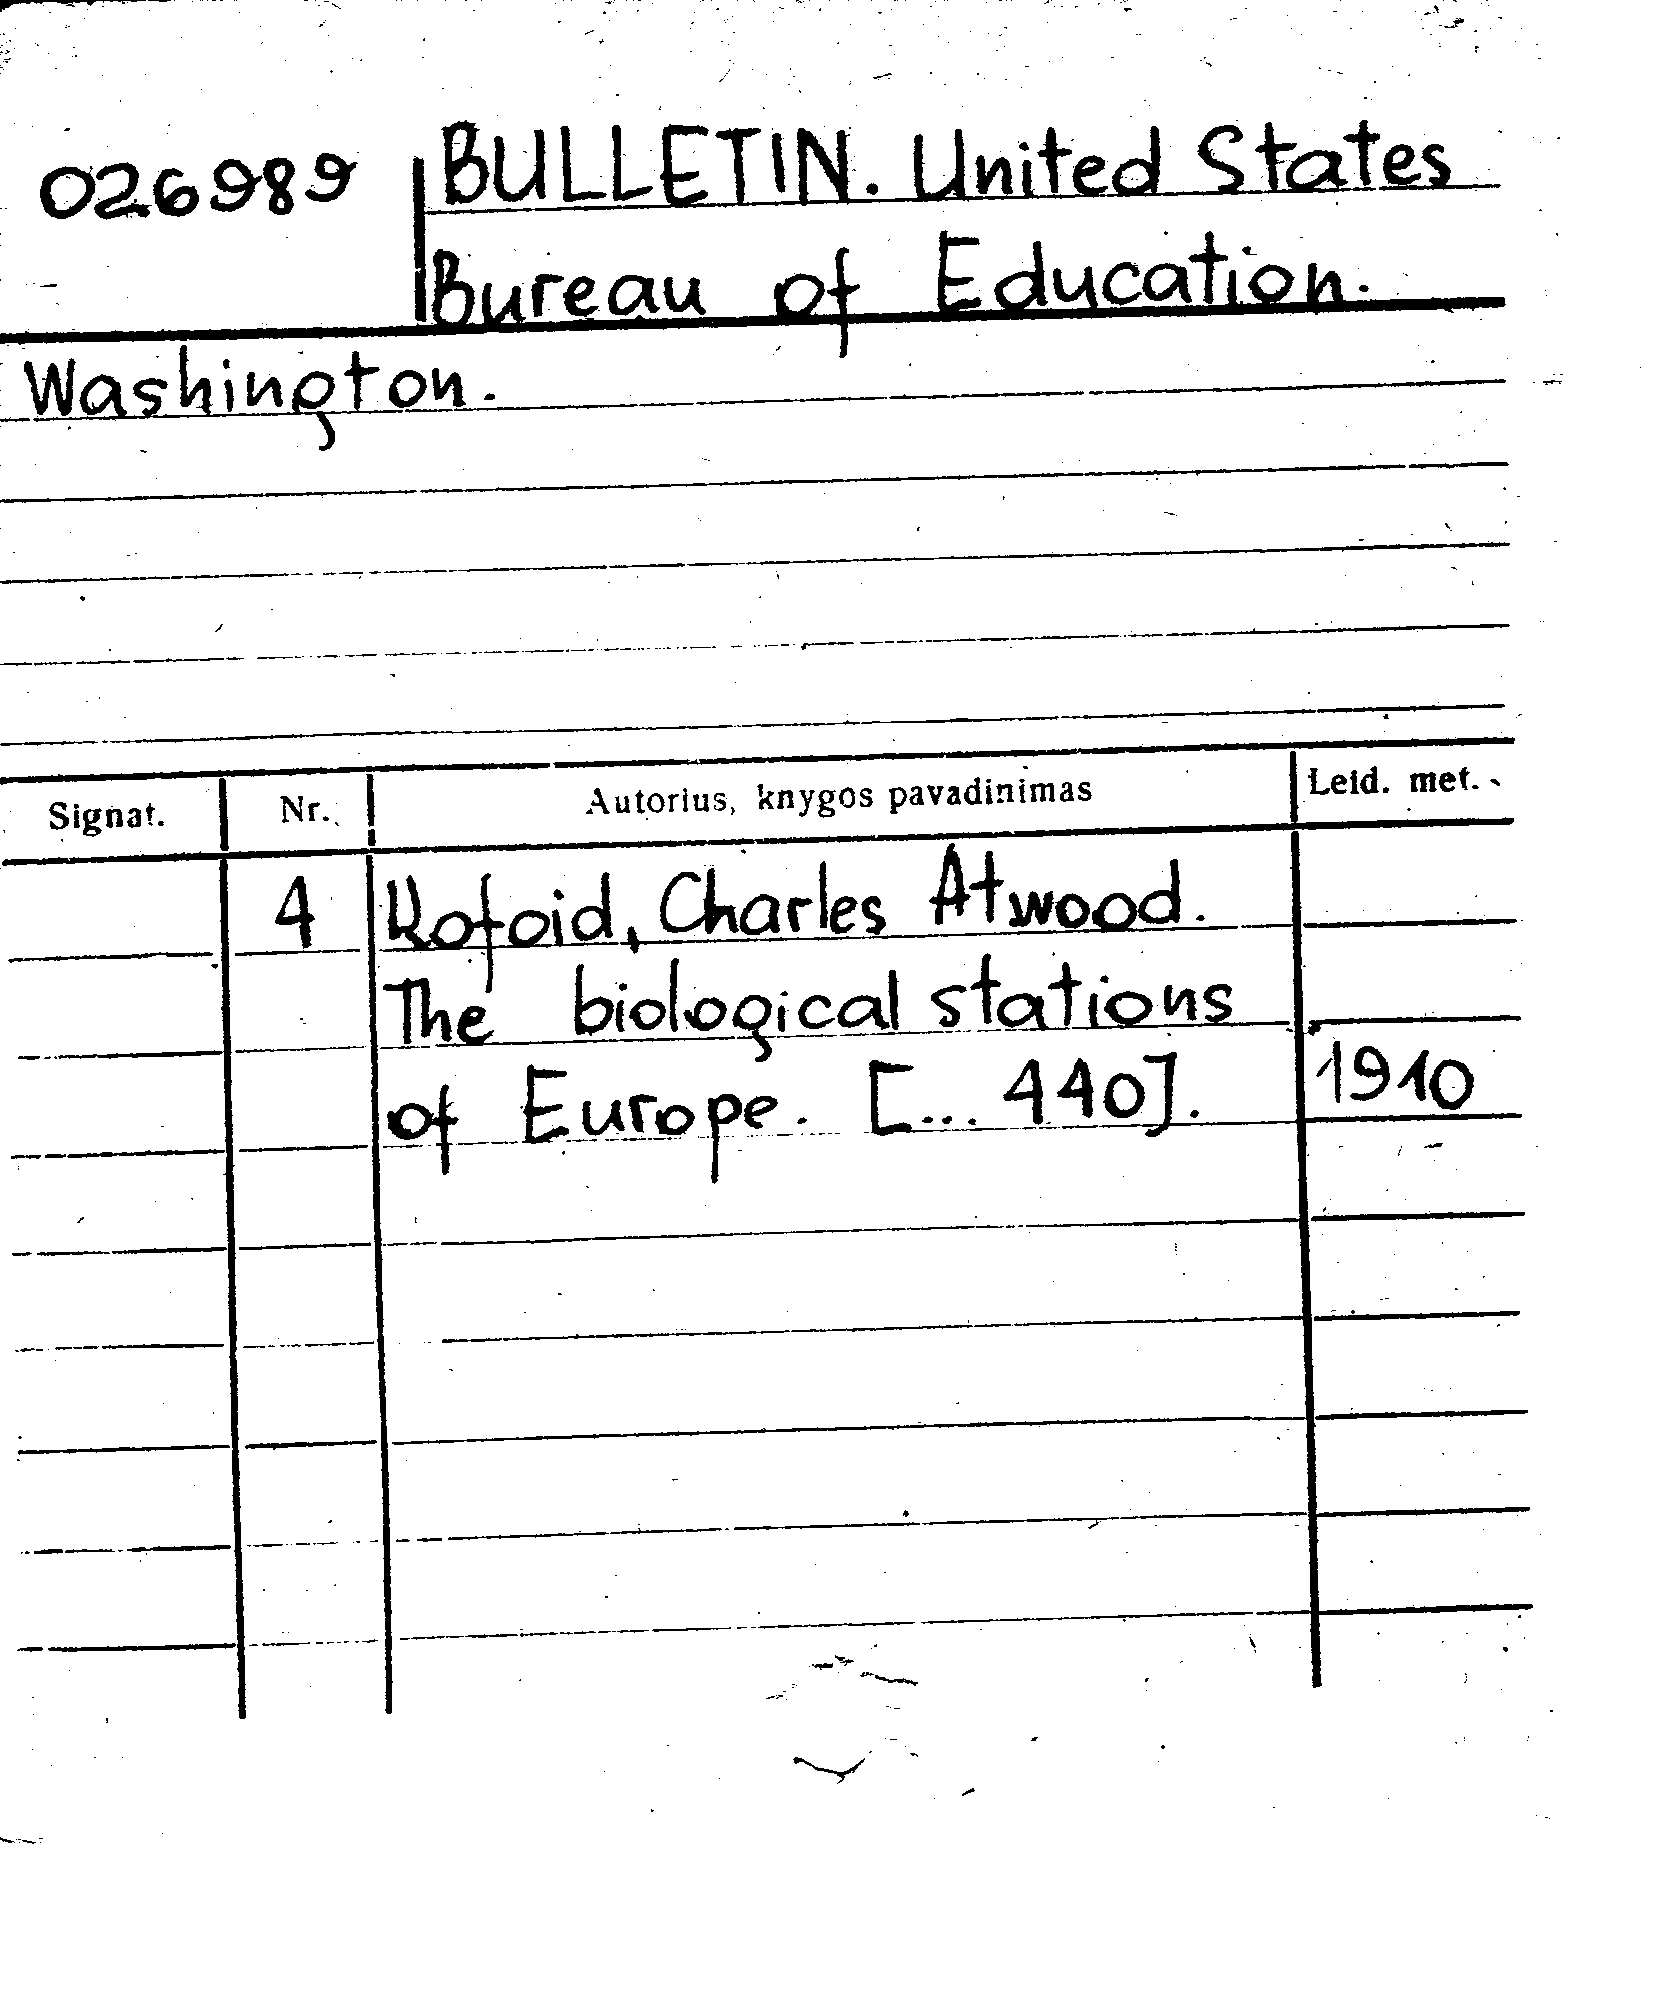 026989 BULLETIN. United States
Bureau of Education.
Washington.
Signat. Nr. Autorius, knygos pavadinimas Leid. met.
4 Kofoid, Charles Atwood.
The biological stations
of Europe. [... 440]. 1910